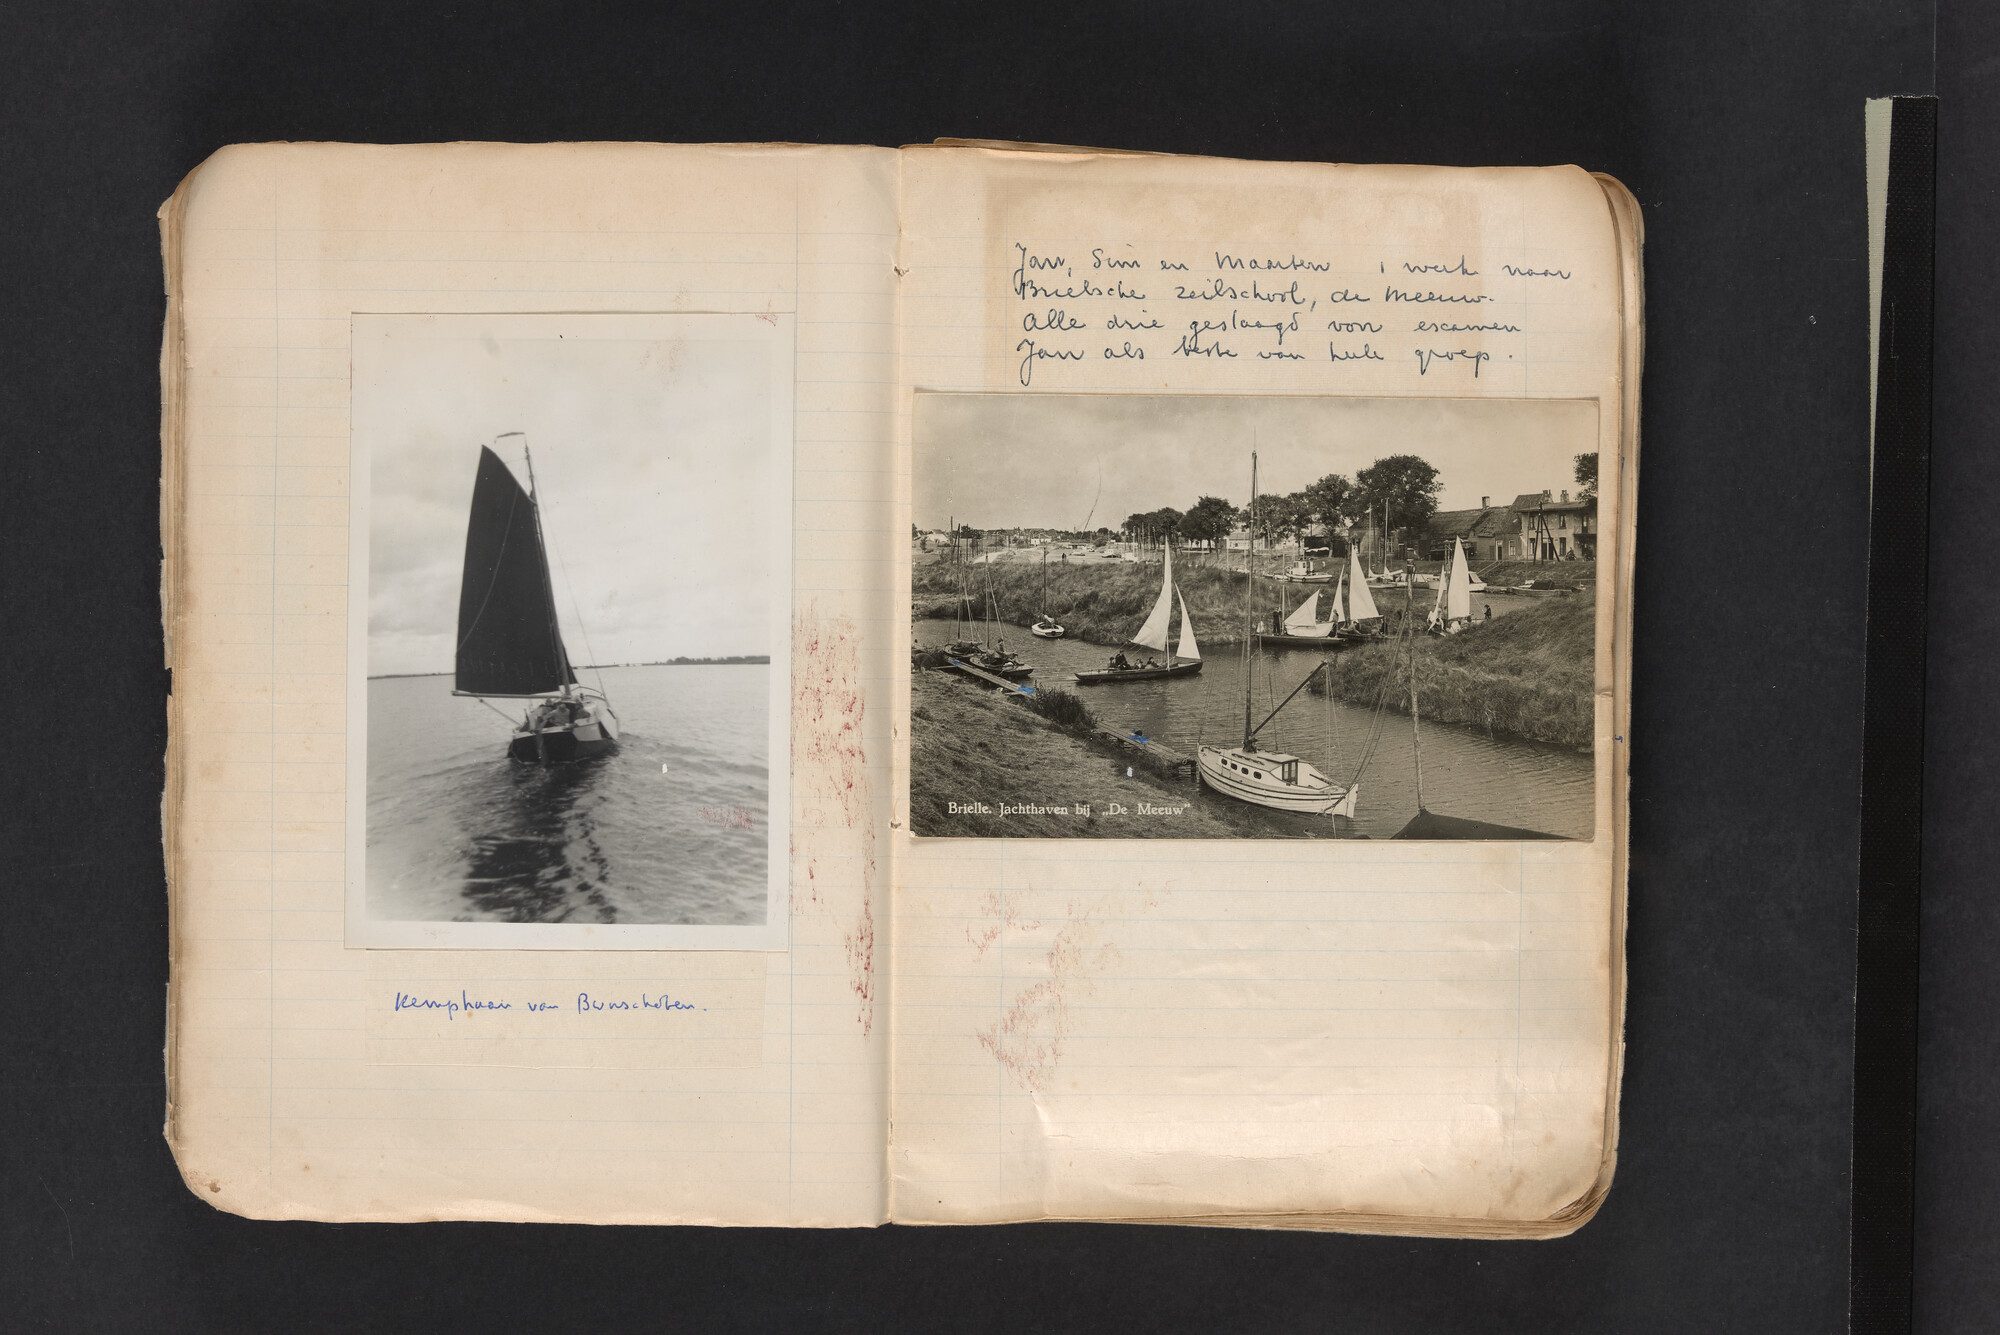 Kemphaan van Bunschoten.
Jan, Sim en Maarten 1 week naar
Brielsche zeilschool, de Meeuw.
Alle drie geslaagd voor escamen
Jan als beste van hele groep.
Brielle. Jachthaven bij „De Meeuw”